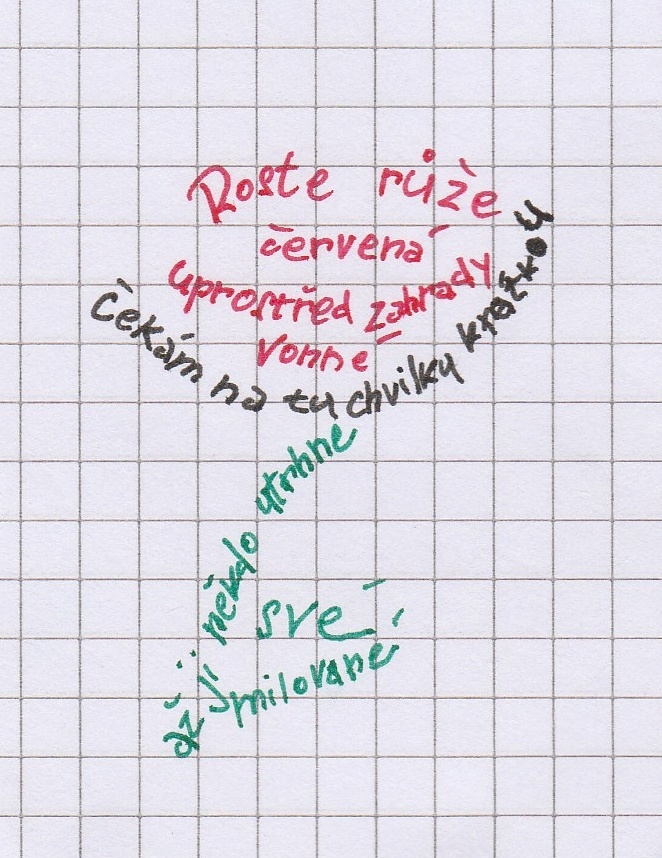 Roste růže
červená
uprostřed zahrady
vonné
Čekám na tu chvilku krátkou
až ji někdo utrhne
své
milované